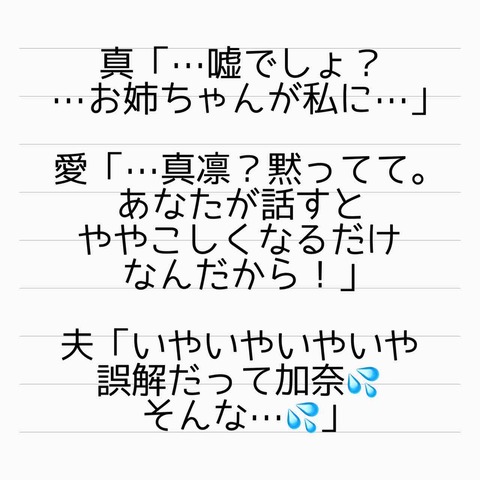 真「…嘘でしょ？
…お姉ちゃんが私に…」
愛「…真凛？黙ってて。
あなたが話すと
ややこしくなるだけ
なんだから！」
夫「いやいやいやいや
誤解だって加奈💦
そんな…💦」